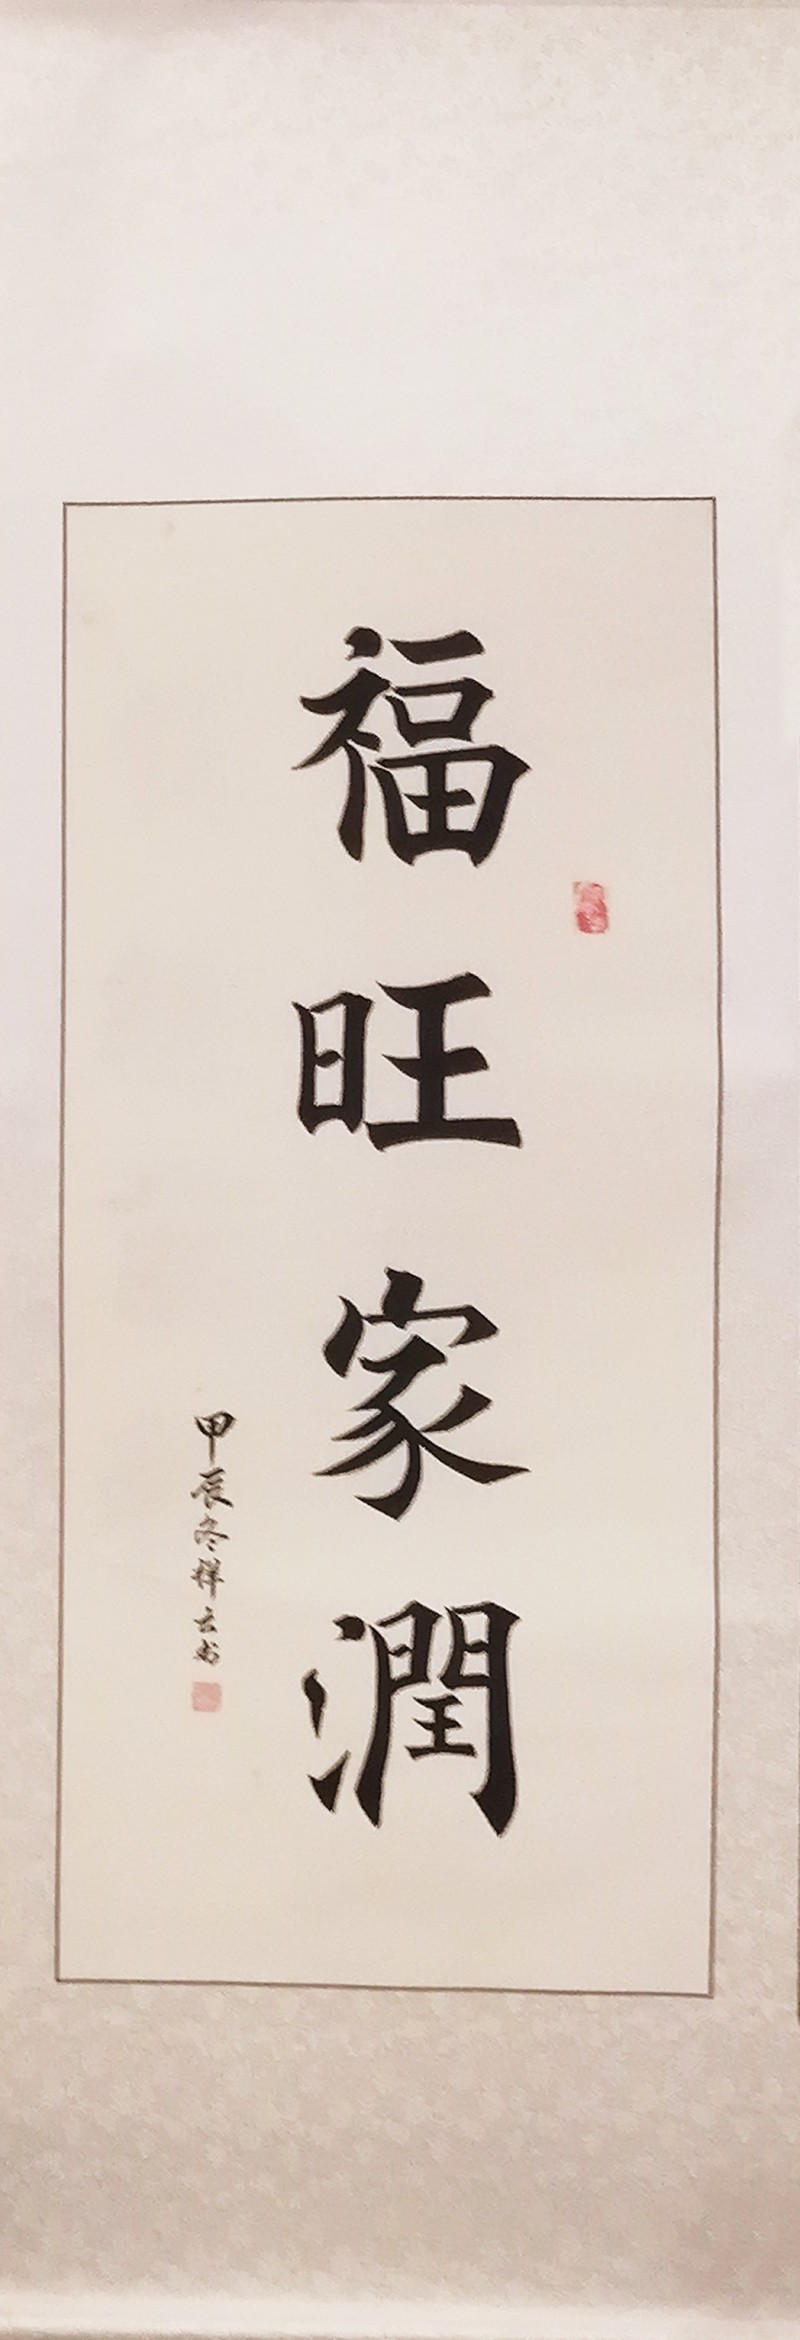 福旺家潤
甲辰冬祥云书